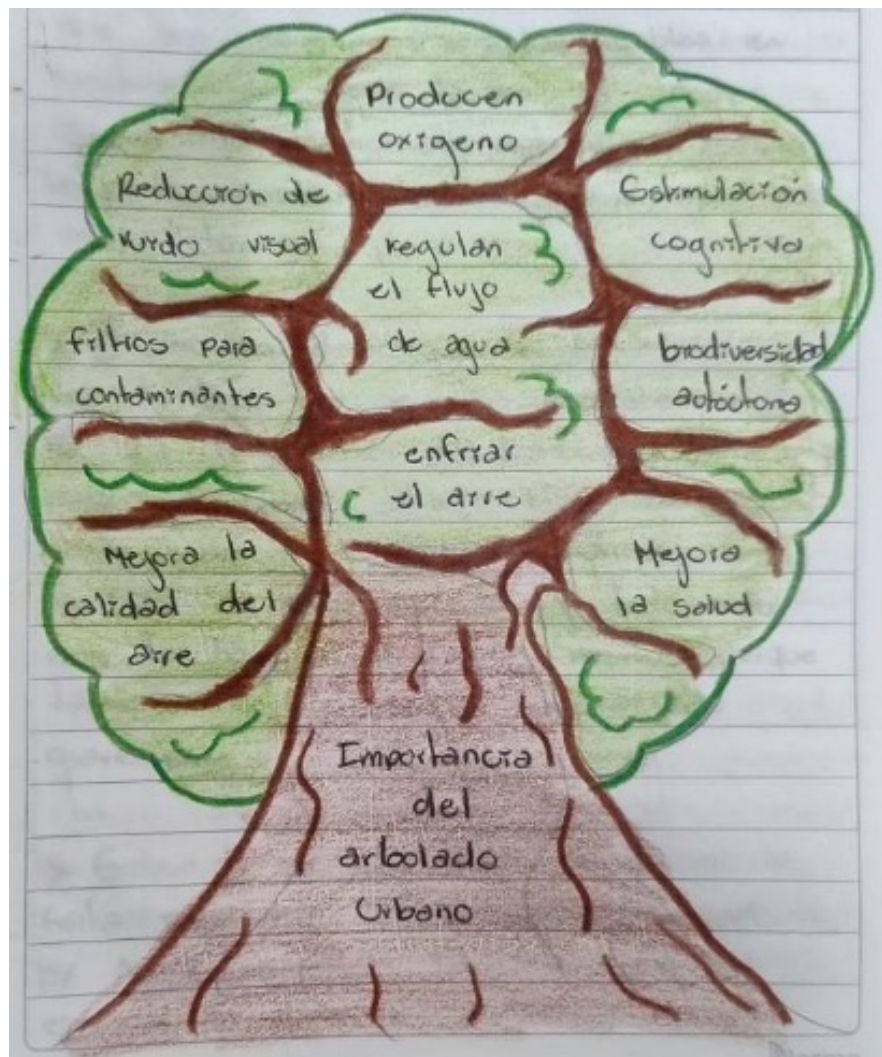 Producen
oxigeno
Reducción de
ruido visual
Estimulación
cognitiva
regulan
el flujo
de agua
filtros para
contaminantes
biodiversidad
autóctona
enfriar
el aire
Mejora la
calidad del
aire
Mejora
la salud
Importancia
del
arbolado
Urbano